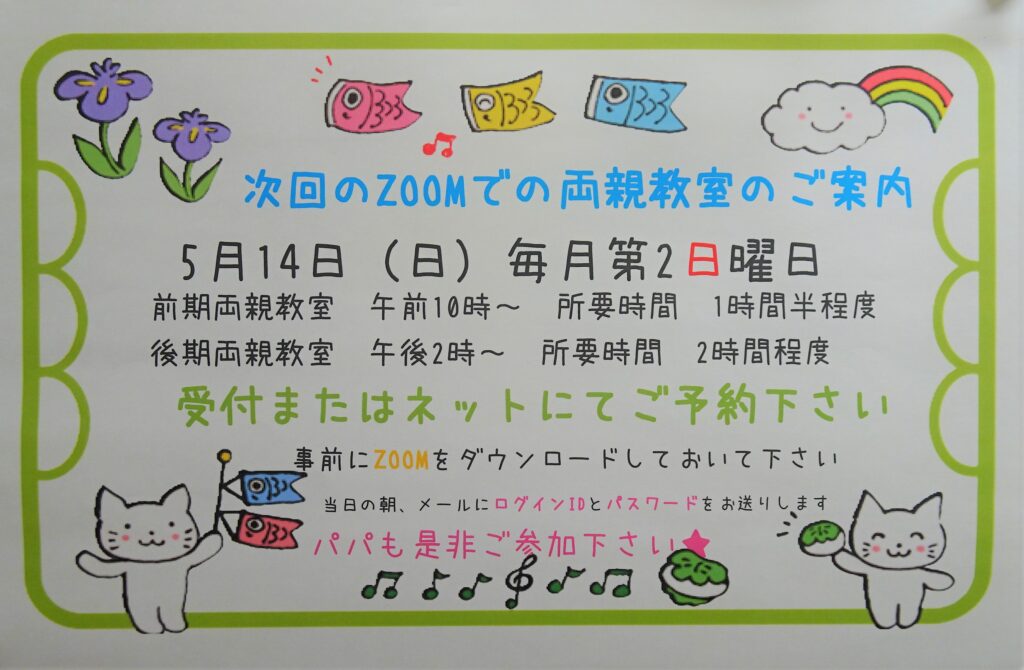 次回のZOOMでの両親教室のご案内
5月14日（日）毎月第2日曜日
前期両親教室　午前10時～　所要時間　1時間半程度
後期両親教室　午後2時～　所要時間　2時間程度
受付またはネットにてご予約下さい
事前にZOOMをダウンロードしておいて下さい
当日の朝、メールにログインIDとパスワードをお送りします
パパも是非ご参加下さい★